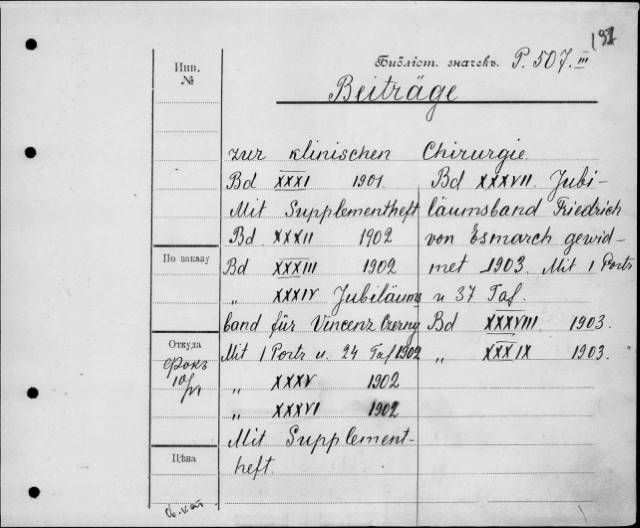 Библіот. значекъ. P. 507. III
Инв.
№
Beiträge
zur klinischen Chirurgie.
Bd XXXI 1901.
Mit Supplementheft
Bd. XXXII 1902
Bd XXXIII 1902
„ XXXIV Jubiläums
band für Vincenz Czerny
Mit 1 Portr u. 24 Taf 1902
„ XXXV 1902
„ XXXVI 1902
Mit Supplement-
heft.
Bd XXXVII. Jubi-
läumsband Friedrich
von Esmarch gewid-
met 1903. Mit 1 Portr
u 37 Taf.
Bd XXXVIII 1903.
„ XXXIX 1903.
По заказу
Откуда
Фокъ
Цѣна